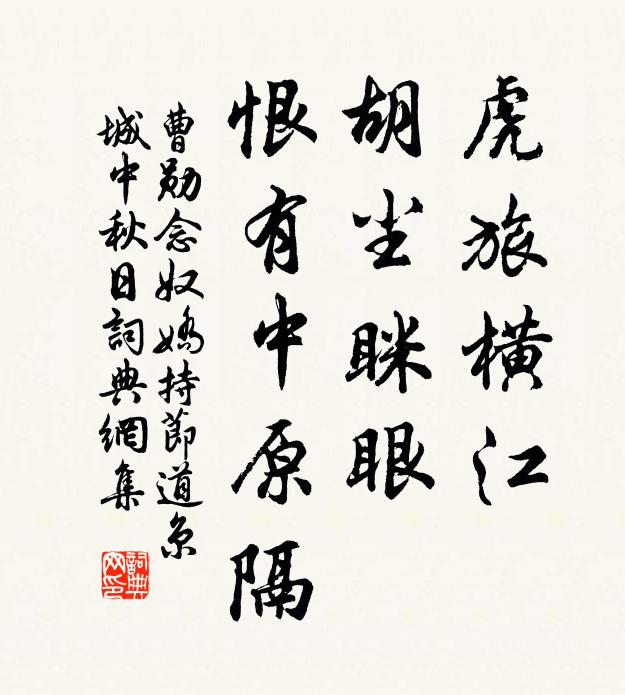 虎旅橫江
胡尘眯眼
恨有中原隔
曹勋念奴嬌持節道京
城中秋日詞典網集
詞典
网印